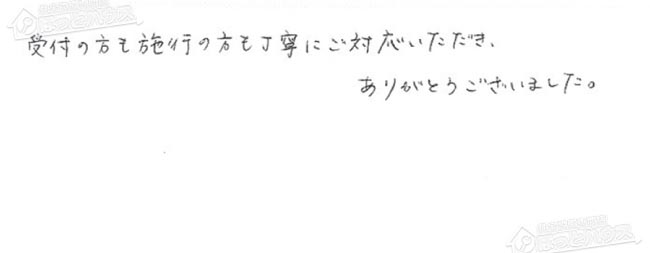 受付の方も施行の方も丁寧にご対応いただき、
ありがとうございました。